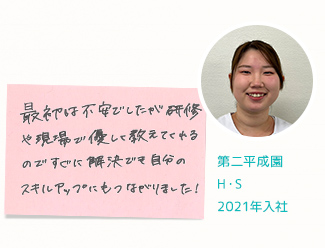 最初は不安でしたが研修
や現場で優しく教えてくれる
のですぐに解決でき自分の
スキルアップにもつながりました!
第二平成園
H・S
2021年入社